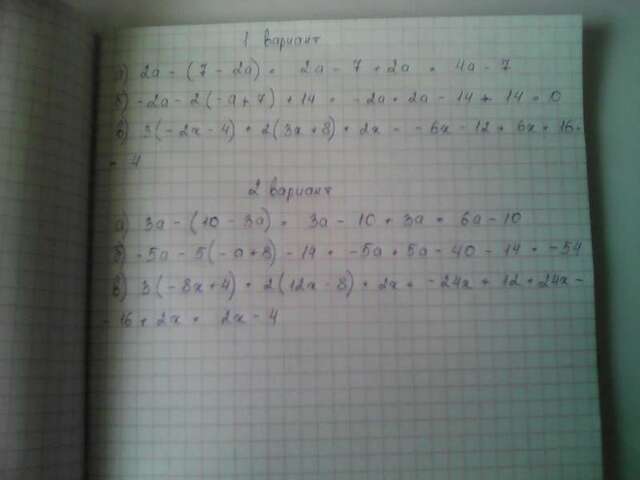 1 вариант
а) 2a - (7 - 2a) = 2a - 7 + 2a = 4a - 7
б) -2a - 2(-a + 7) + 14 = -2a + 2a - 14 + 14 = 0
в) 3(-2x - 4) + 2(3x + 8) + 2x = -6x - 12 + 6x + 16 =
= 4
2 вариант
а) 3a - (10 - 3a) = 3a - 10 + 3a = 6a - 10
б) -5a - 5(-a + 8) - 14 = -5a + 5a - 40 - 14 = -54
в) 3(-8x + 4) + 2(12x - 8) + 2x = -24x + 12 + 24x -
- 16 + 2x = 2x - 4